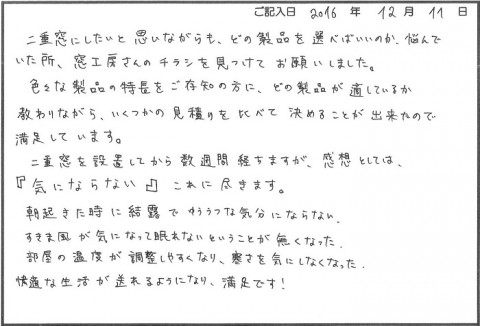 ご記入日 2016 年 12 月 11 日
二重窓にしたいと思いながらも、どの製品を選べばいいのか、悩んで
いた所、窓工房さんのチラシを見つけてお願いしました。
色々な製品の特長をご存知の方に、どの製品が適しているか
教わりながら、いくつかの見積りを比べて決めることが出来たので
満足しています。
二重窓を設置してから数週間経ちますが、感想としては、
『気にならない』これに尽きます。
朝起きた時に結露でゆううつな気分にならない.
すきま風が気になって眠れないということが無くなった.
部屋の温度が調整しやすくなり、寒さを気にしなくなった.
快適な生活が送れるようになり、満足です!